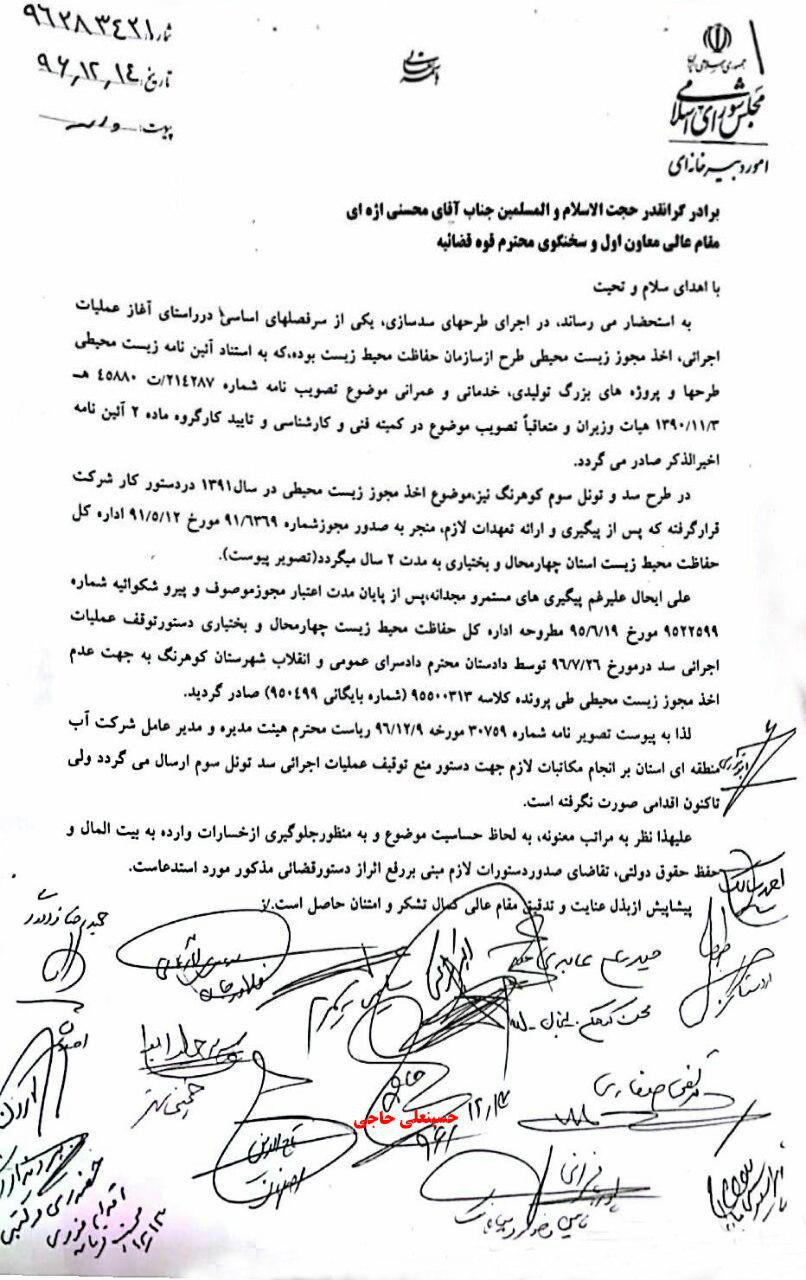 جمهوری اسلامی ایران
مجلس شورای اسلامی
امور دبیرخانه‌ای
باسمه تعالی
شماره: ۹۶۲۸۳۴۲۱
تاریخ: ۹۶,۱۲,۱۴
پیوست: دارد
برادر گرانقدر حجت الاسلام و المسلمین جناب آقای محسنی اژه ای
مقام عالی معاون اول و سخنگوی محترم قوه قضائیه
با اهدای سلام و تحیت
به استحضار می رساند، در اجرای طرحهای سدسازی، یکی از سرفصلهای اساسی درراستای آغاز عملیات
اجرائی، اخذ مجوز زیست محیطی طرح ازسازمان حفاظت محیط زیست بوده،که به استناد آئین نامه زیست محیطی
طرحها و پروژه های بزرگ تولیدی، خدماتی و عمرانی موضوع تصویب نامه شماره ۲۱۴۲۸۷/ت ۴۵۸۸۰ هـ
۱۳۹۰/۱۱/۳ هیات وزیران و متعاقباً تصویب موضوع در کمیته فنی و کارشناسی و تایید کارگروه ماده ۲ آئین نامه
اخیرالذکر صادر می گردد.
در طرح سد و تونل سوم کوهرنگ نیز،موضوع اخذ مجوز زیست محیطی در سال۱۳۹۱ دردستور کار شرکت
قرارگرفته که پس از پیگیری و ارائه تعهدات لازم، منجر به صدور مجوزشماره ۹۱/۶۳۶۹ مورخ ۹۱/۵/۱۲ اداره کل
حفاظت محیط زیست استان چهارمحال و بختیاری به مدت ۲ سال میگردد(تصویر پیوست).
علی ایحال علیرغم پیگیری های مستمرو مجدانه،پس از پایان مدت اعتبار مجوزموصوف و پیرو شکوائیه شماره
۹۵۲۲۵۹۹ مورخ ۹۵/۶/۱۹ مطروحه اداره کل حفاظت محیط زیست چهارمحال و بختیاری دستورتوقف عملیات
اجرائی سد درمورخ ۹۶/۷/۲۶ توسط دادستان محترم دادسرای عمومی و انقلاب شهرستان کوهرنگ به جهت عدم
اخذ مجوز زیست محیطی طی پرونده کلاسه ۹۵۵۰۰۳۱۳ (شماره بایگانی ۹۵۰۴۹۹) صادر گردید.
لذا به پیوست تصویر نامه شماره ۳۰۷۵۹ مورخه ۹۶/۱۲/۹ ریاست محترم هیئت مدیره و مدیر عامل شرکت آب
منطقه ای استان بر انجام مکاتبات لازم جهت دستور منع توقیف عملیات اجرائی سد تونل سوم ارسال می گردد ولی
تاکنون اقدامی صورت نگرفته است.
علیهذا نظر به مراتب معنونه، به لحاظ حساسیت موضوع و به منظورجلوگیری ازخسارات وارده به بیت المال و
حفظ حقوق دولتی، تقاضای صدوردستورات لازم مبنی بررفع اثراز دستورقضائی مذکور مورد استدعاست.
پیشاپیش ازبذل عنایت و تدقیق مقام عالی کمال تشکر و امتنان حاصل است.
احمد سالک
حیدرعلی عابدی
اردستان
خمینی شهر
حاجی
حسینعلی حاجی
۹۶/۱۲/۱۴